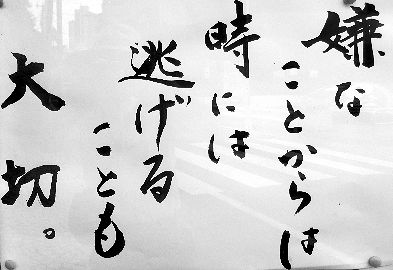 嫌なことからは
時には
逃げる
ことも
大切。